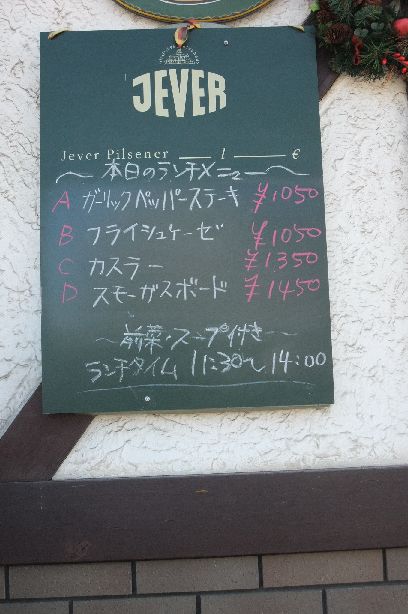 JEVER
Jever Pilsener l €
～本日のランチメニュー～
A ガーリックペッパーステーキ ¥1050
B フライシュケーゼ ¥1050
C カスラー ¥1350
D スモーガスボード ¥1450
～前菜・スープ付き～
ランチタイム 11:30～14:00